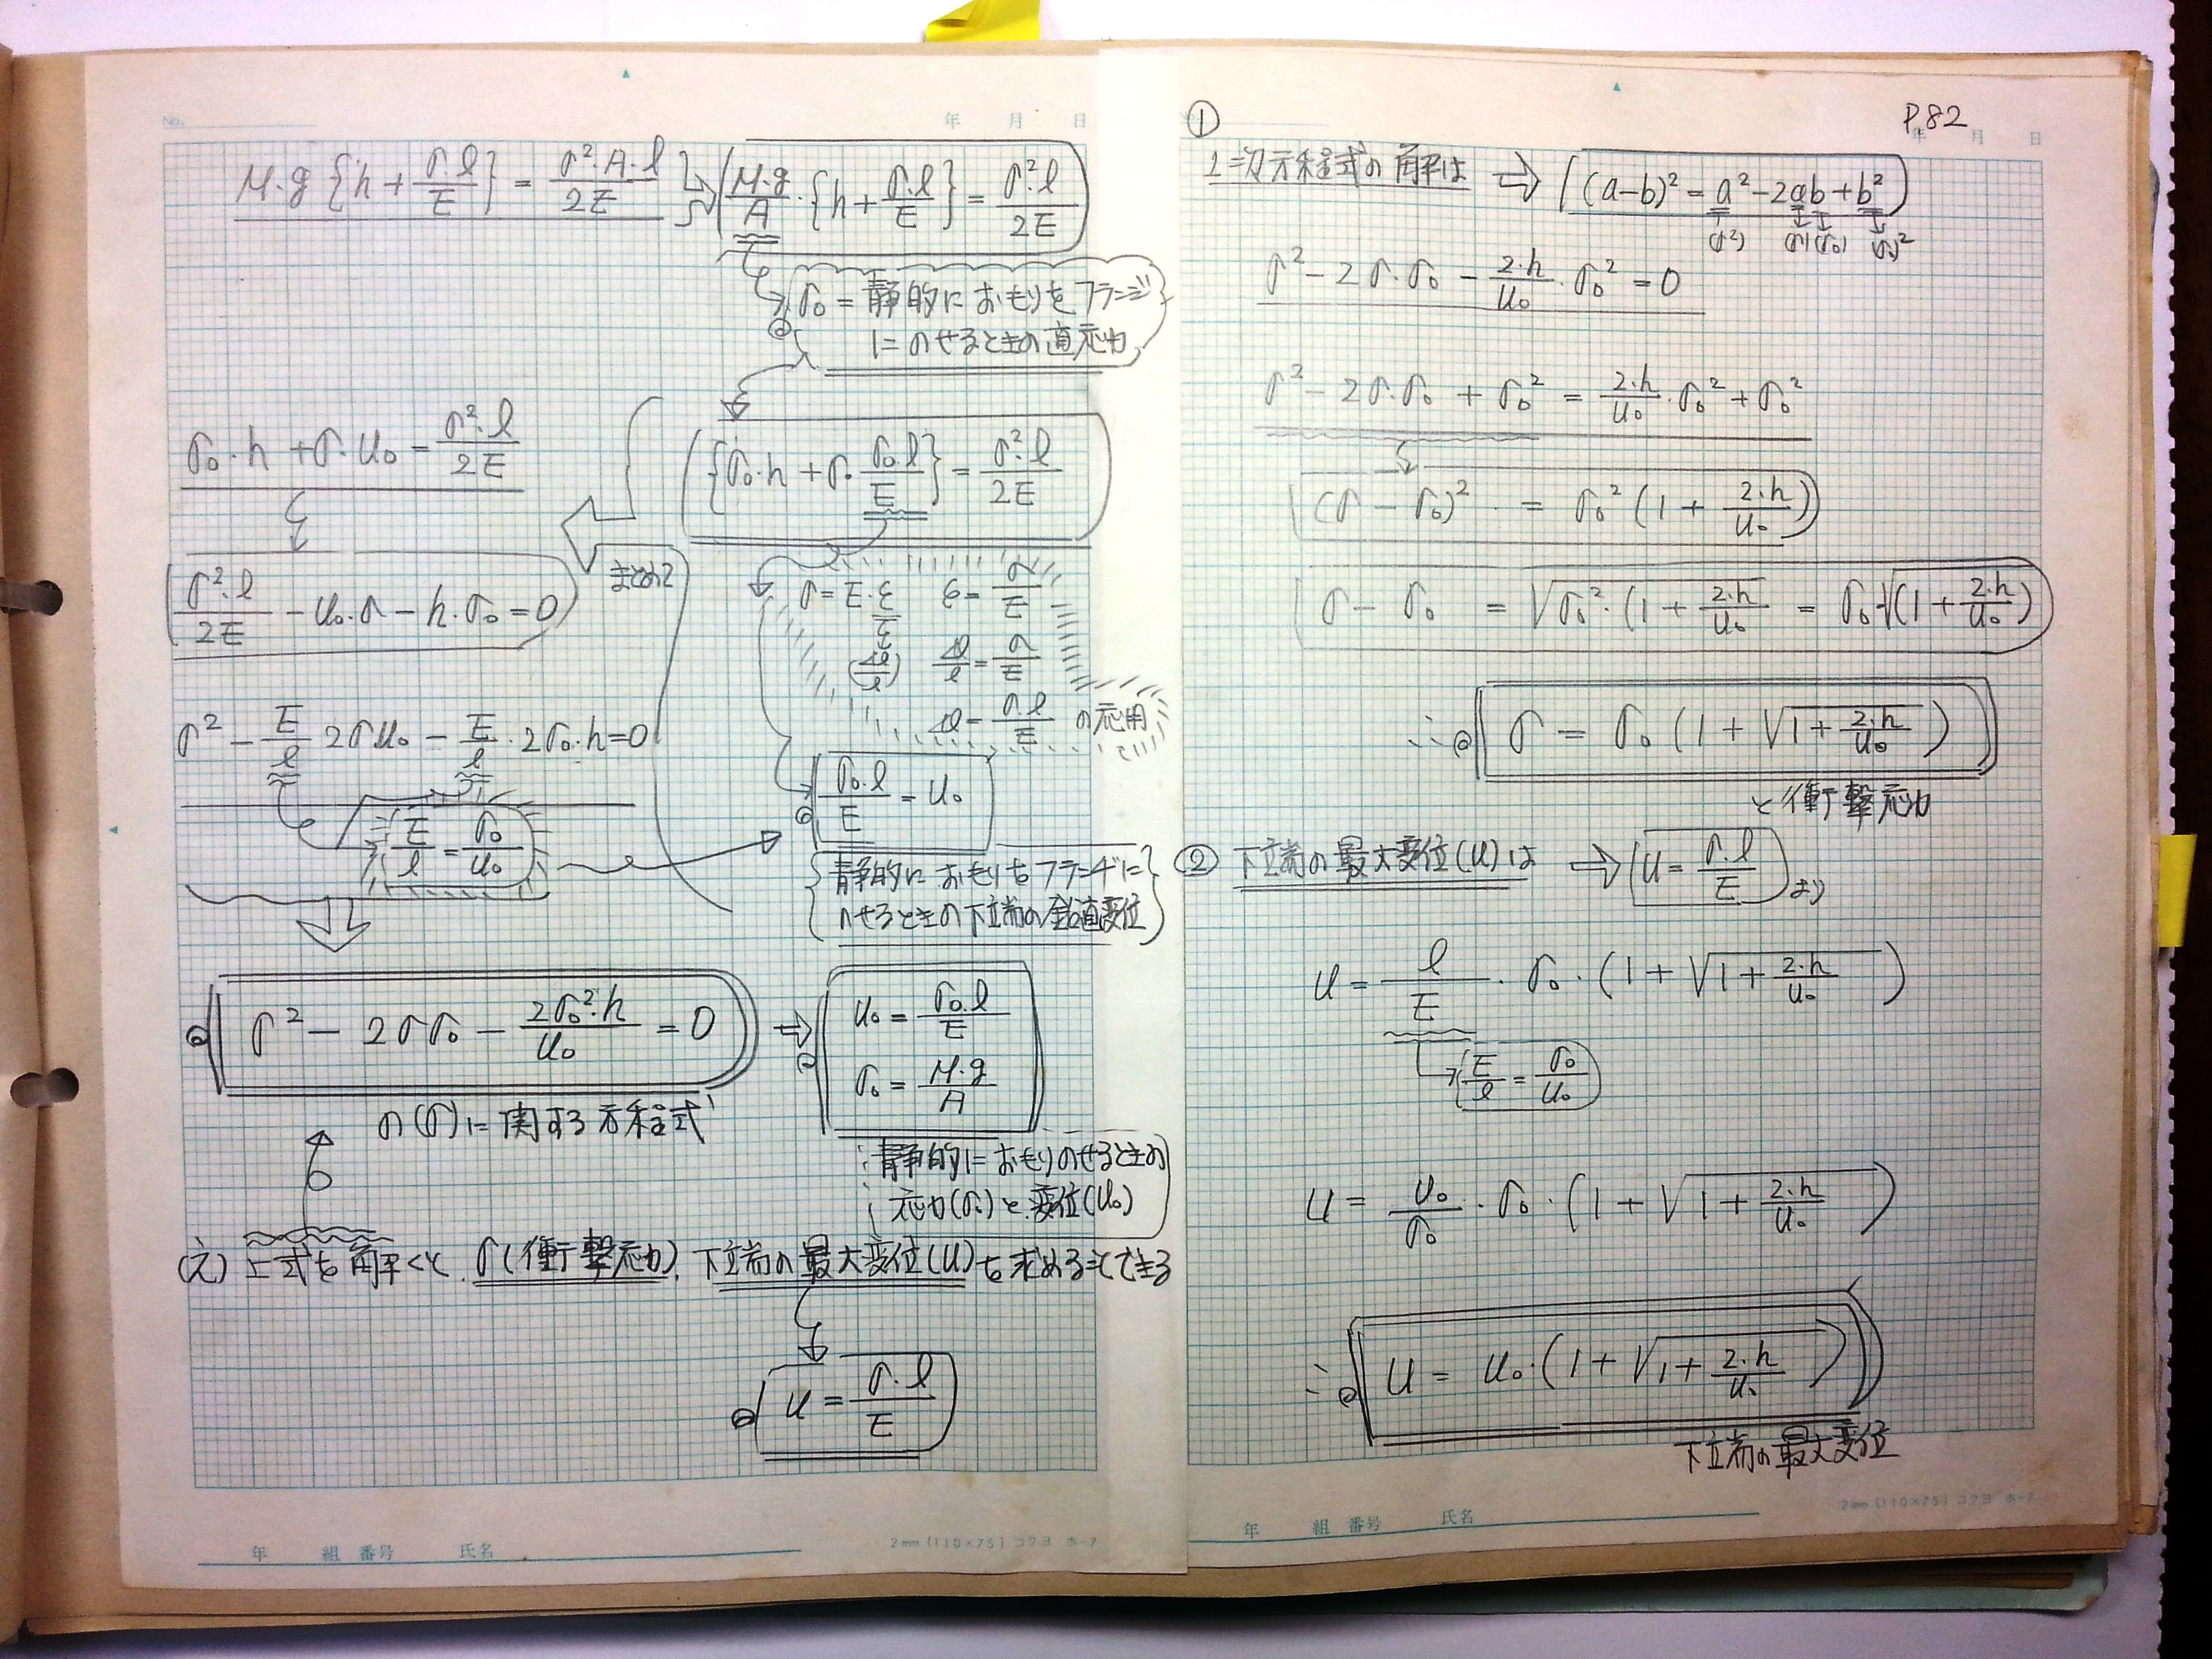 No.
年 月 日
M·g{h + σ·l/E} = σ²·A·l/2E
M·g/A·{h + σ·l/E} = σ²·l/2E
σ₀ = 静的におもりをフランジ
にのせるときの直応力
{σ₀·h + σ·σ₀·l/E} = σ²·l/2E
まとめて
σ₀·h + σ·u₀ = σ²·l/2E
σ²·l/2E - u₀·σ - h·σ₀ = 0
σ = E·ε ε = σ/E
(Δl/l) Δl/l = σ/E
Δl = σ·l/E の応用
σ² - E/l 2σu₀ - E/l·2σ₀·h = 0
E/l = σ₀/u₀
σ₀·l/E = u₀
静的におもりをフランヂに
のせるときの下立端の鉛直変位
σ² - 2σσ₀ - 2σ₀²·h/u₀ = 0
の(σ)に関する方程式
u₀ = σ₀·l/E
σ₀ = M·g/A
静的におもりのせるときの
応力(σ₀)と変位(u₀)
(え)上式を解くと、σ(衝撃応力)、下立端の最大変位(u)を求めることできる
u = σ·l/E
年 組 番号 氏名
2mm (110×75) コクヨ ホ-7
P.82
年 月 日
① 2次方程式の解は ⇒ (a-b)² = a² - 2ab + b²
(σ²) (σ)(σ₀) (σ₀)²
σ² - 2σ·σ₀ - 2·h/u₀·σ₀² = 0
σ² - 2σ·σ₀ + σ₀² = 2·h/u₀·σ₀² + σ₀²
(σ - σ₀)² = σ₀²(1 + 2·h/u₀)
σ - σ₀ = √σ₀²·(1 + 2·h/u₀ = σ₀·√(1 + 2·h/u₀)
∴ σ = σ₀(1 + √1 + 2·h/u₀)
と衝撃応力
② 下立端の最大変位(u)は ⇒ u = σ·l/E より
u = l/E·σ₀·(1 + √1 + 2·h/u₀)
E/l = σ₀/u₀
u = u₀/σ₀·σ₀·(1 + √1 + 2·h/u₀)
∴ u = u₀·(1 + √1 + 2·h/u₀)
下立端の最大変位
年 組 番号 氏名
2mm (110×75) コクヨ ホ-7